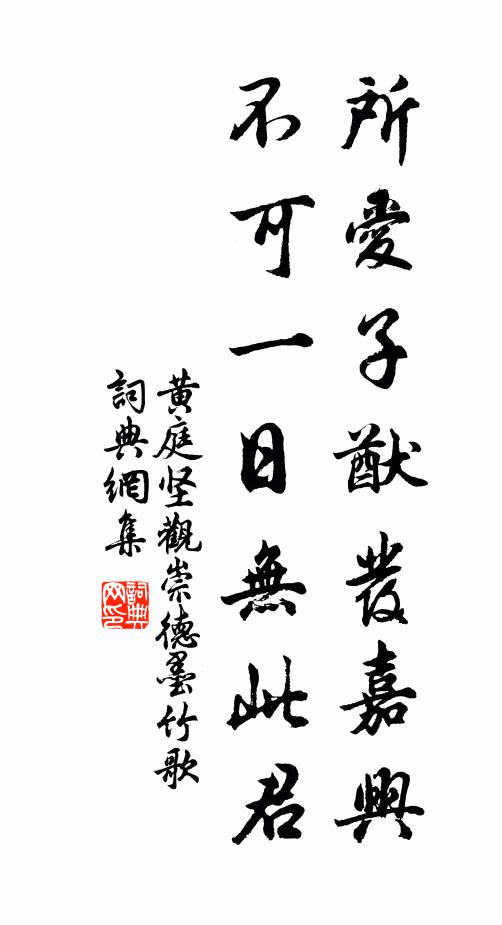 所愛子猷發嘉興
不可一日無此君
黄庭坚觀崇德墨竹歌
詞典網集
詞典网印